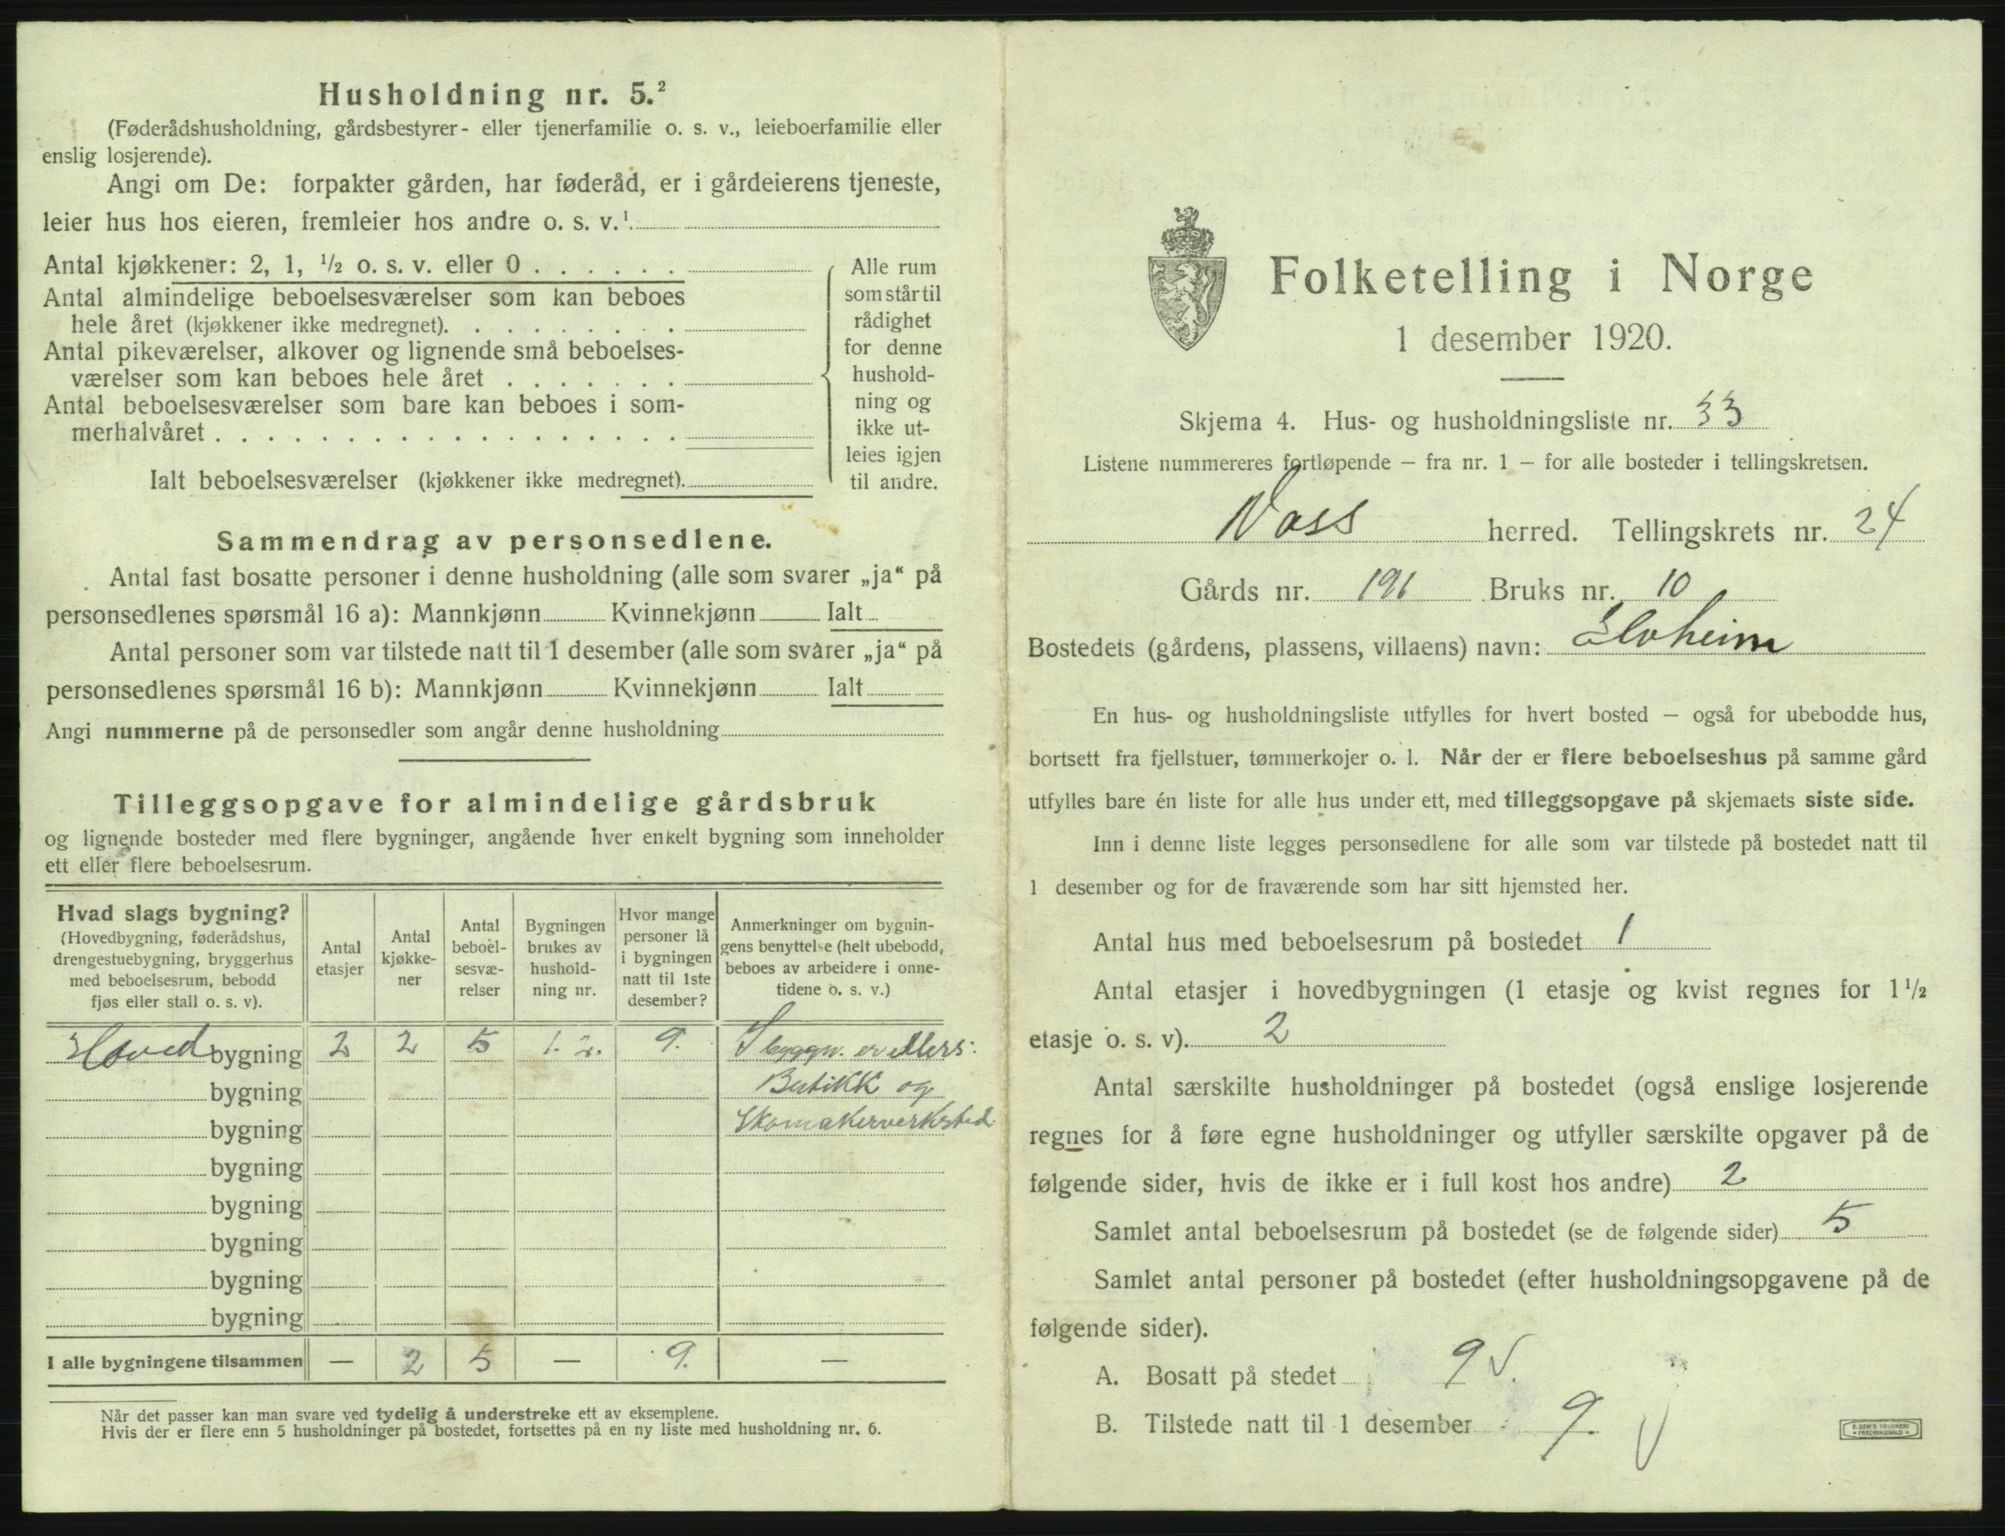 Husholdning nr. 5.²
(Føderådshusholdning, gårdsbestyrer- eller tjenerfamilie o. s. v., leieboerfamilie eller
enslig losjerende).
Angi om De: forpakter gården, har føderåd, er i gårdeierens tjeneste,
leier hus hos eieren, fremleier hos andre o. s. v.¹
Antal kjøkkener: 2, 1, ½ o. s. v. eller 0 . . . . . .
Antal almindelige beboelsesværelser som kan beboes
hele året (kjøkkener ikke medregnet). . . . . . . . .
Antal pikeværelser, alkover og lignende små beboelses-
værelser som kan beboes hele året . . . . . . .
Antal beboelsesværelser som bare kan beboes i som-
merhalvåret . . . . . . . . . . . . . . . . . .
Ialt beboelsesværelser (kjøkkener ikke medregnet).
Alle rum
som står til
rådighet
for denne
hushold-
ning og
ikke ut-
leies igjen
til andre.
Sammendrag av personsedlene.
Antal fast bosatte personer i denne husholdning (alle som svarer „ja“ på
personsedlenes spørsmål 16 a): Mannkjønn Kvinnekjønn Ialt
Antal personer som var tilstede natt til 1 desember (alle som svarer „ja“ på
personsedlenes spørsmål 16 b): Mannkjønn Kvinnekjønn Ialt
Angi nummerne på de personsedler som angår denne husholdning
Tilleggsopgave for almindelige gårdsbruk
og lignende bosteder med flere bygninger, angående hver enkelt bygning som inneholder
ett eller flere beboelsesrum.
Hvad slags bygning?
(Hovedbygning, føderådshus,
drengestuebygning, bryggerhus
med beboelsesrum, bebodd
fjøs eller stall o. s. v).
Antal
etasjer
Antal
kjøkke-
ner
Antal
beboel-
sesvæ-
relser
Bygningen
brukes av
hushold-
ning nr.
Hvor mange
personer lå
i bygningen
natt til 1ste
desember?
Anmerkninger om bygnin-
gens benyttelse (helt ubebodd,
beboes av arbeidere i onne-
tidene o. s. v.)
Hoved bygning 2 2 5 1. 2. 9. I byggn. er ellers:
bygning Butikk og
bygning Skomakerverksted.
bygning
bygning
bygning
bygning
bygning
I alle bygningene tilsammen — 2 5 — 9. —
Når det passer kan man svare ved tydelig å understreke ett av eksemplene.
Hvis der er flere enn 5 husholdninger på bostedet, fortsettes på en ny liste med husholdning nr. 6.
Folketelling i Norge
1 desember 1920.
Skjema 4. Hus- og husholdningsliste nr. 33
Listene nummereres fortløpende – fra nr. 1 – for alle bosteder i tellingskretsen.
Voss herred. Tellingskrets nr. 24
Gårds nr. 191 Bruks nr. 10
Bostedets (gårdens, plassens, villaens) navn: Elvheim
En hus- og husholdningsliste utfylles for hvert bosted – også for ubebodde hus,
bortsett fra fjellstuer, tømmerkojer o. l. Når der er flere beboelseshus på samme gård
utfylles bare én liste for alle hus under ett, med tilleggsopgave på skjemaets siste side.
Inn i denne liste legges personsedlene for alle som var tilstede på bostedet natt til
1 desember og for de fraværende som har sitt hjemsted her.
Antal hus med beboelsesrum på bostedet 1
Antal etasjer i hovedbygningen (1 etasje og kvist regnes for 1½
etasje o. s. v). 2
Antal særskilte husholdninger på bostedet (også enslige losjerende
regnes for å føre egne husholdninger og utfyller særskilte opgaver på de
følgende sider, hvis de ikke er i full kost hos andre) 2
Samlet antal beboelsesrum på bostedet (se de følgende sider) 5
Samlet antal personer på bostedet (efter husholdningsopgavene på de
følgende sider).
A. Bosatt på stedet 9 v.
B. Tilstede natt til 1 desember 9. v